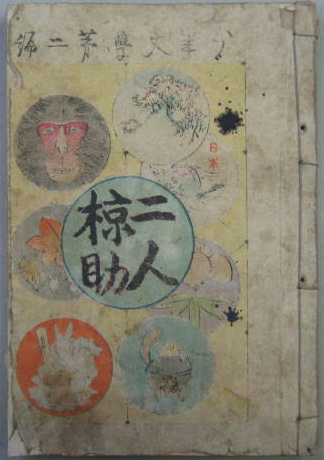 少年文學第二編
日本
二人
椋助